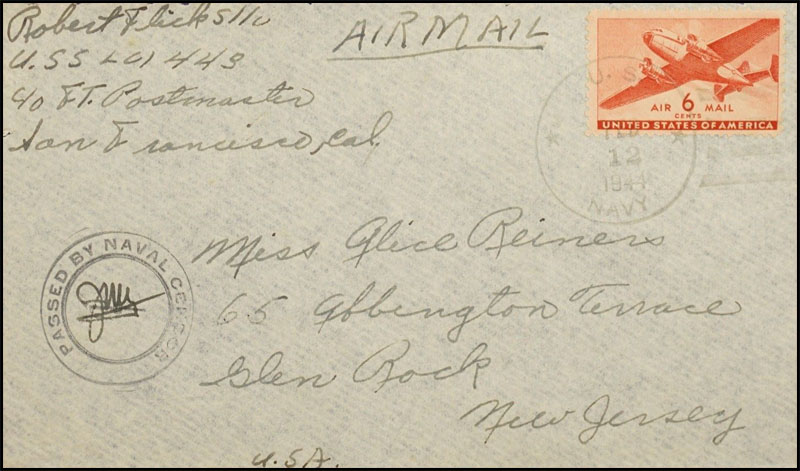 Robert Flick S1/c
U.S.S LCI 443
c/o Ft. Postmaster
San Francisco, Cal.
AIR MAIL
AIR 6 MAIL
CENTS
UNITED STATES OF AMERICA
U. S.
12
1944
NAVY
PASSED BY NAVAL CENSOR
Miss Alice Reiners
65 Abbington Terrace
Glen Rock
New Jersey
U.S.A.